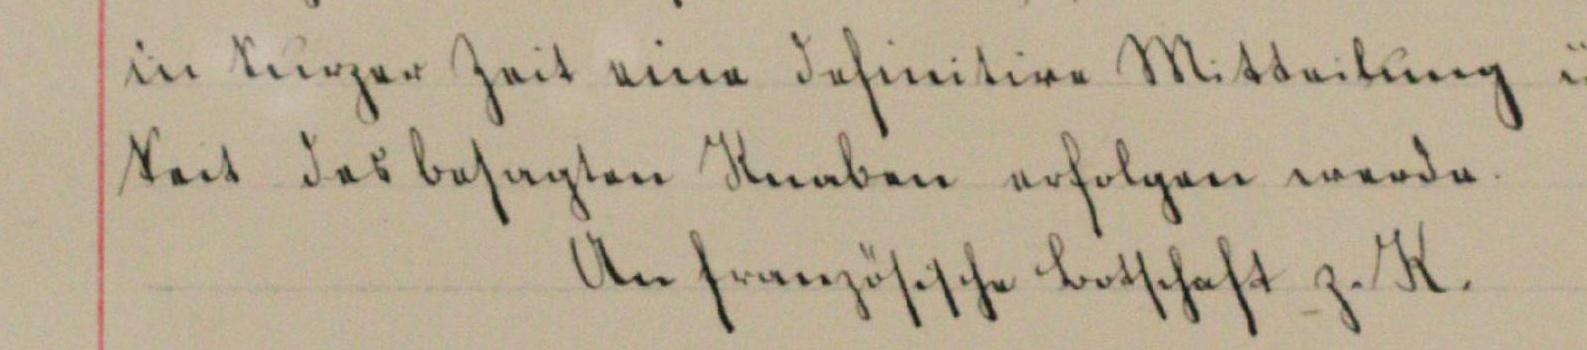 in kurzer Zeit eine definitive Mitteilung
keit des besagten Knaben erfolgen werde.
An französische Botschaft z. K.